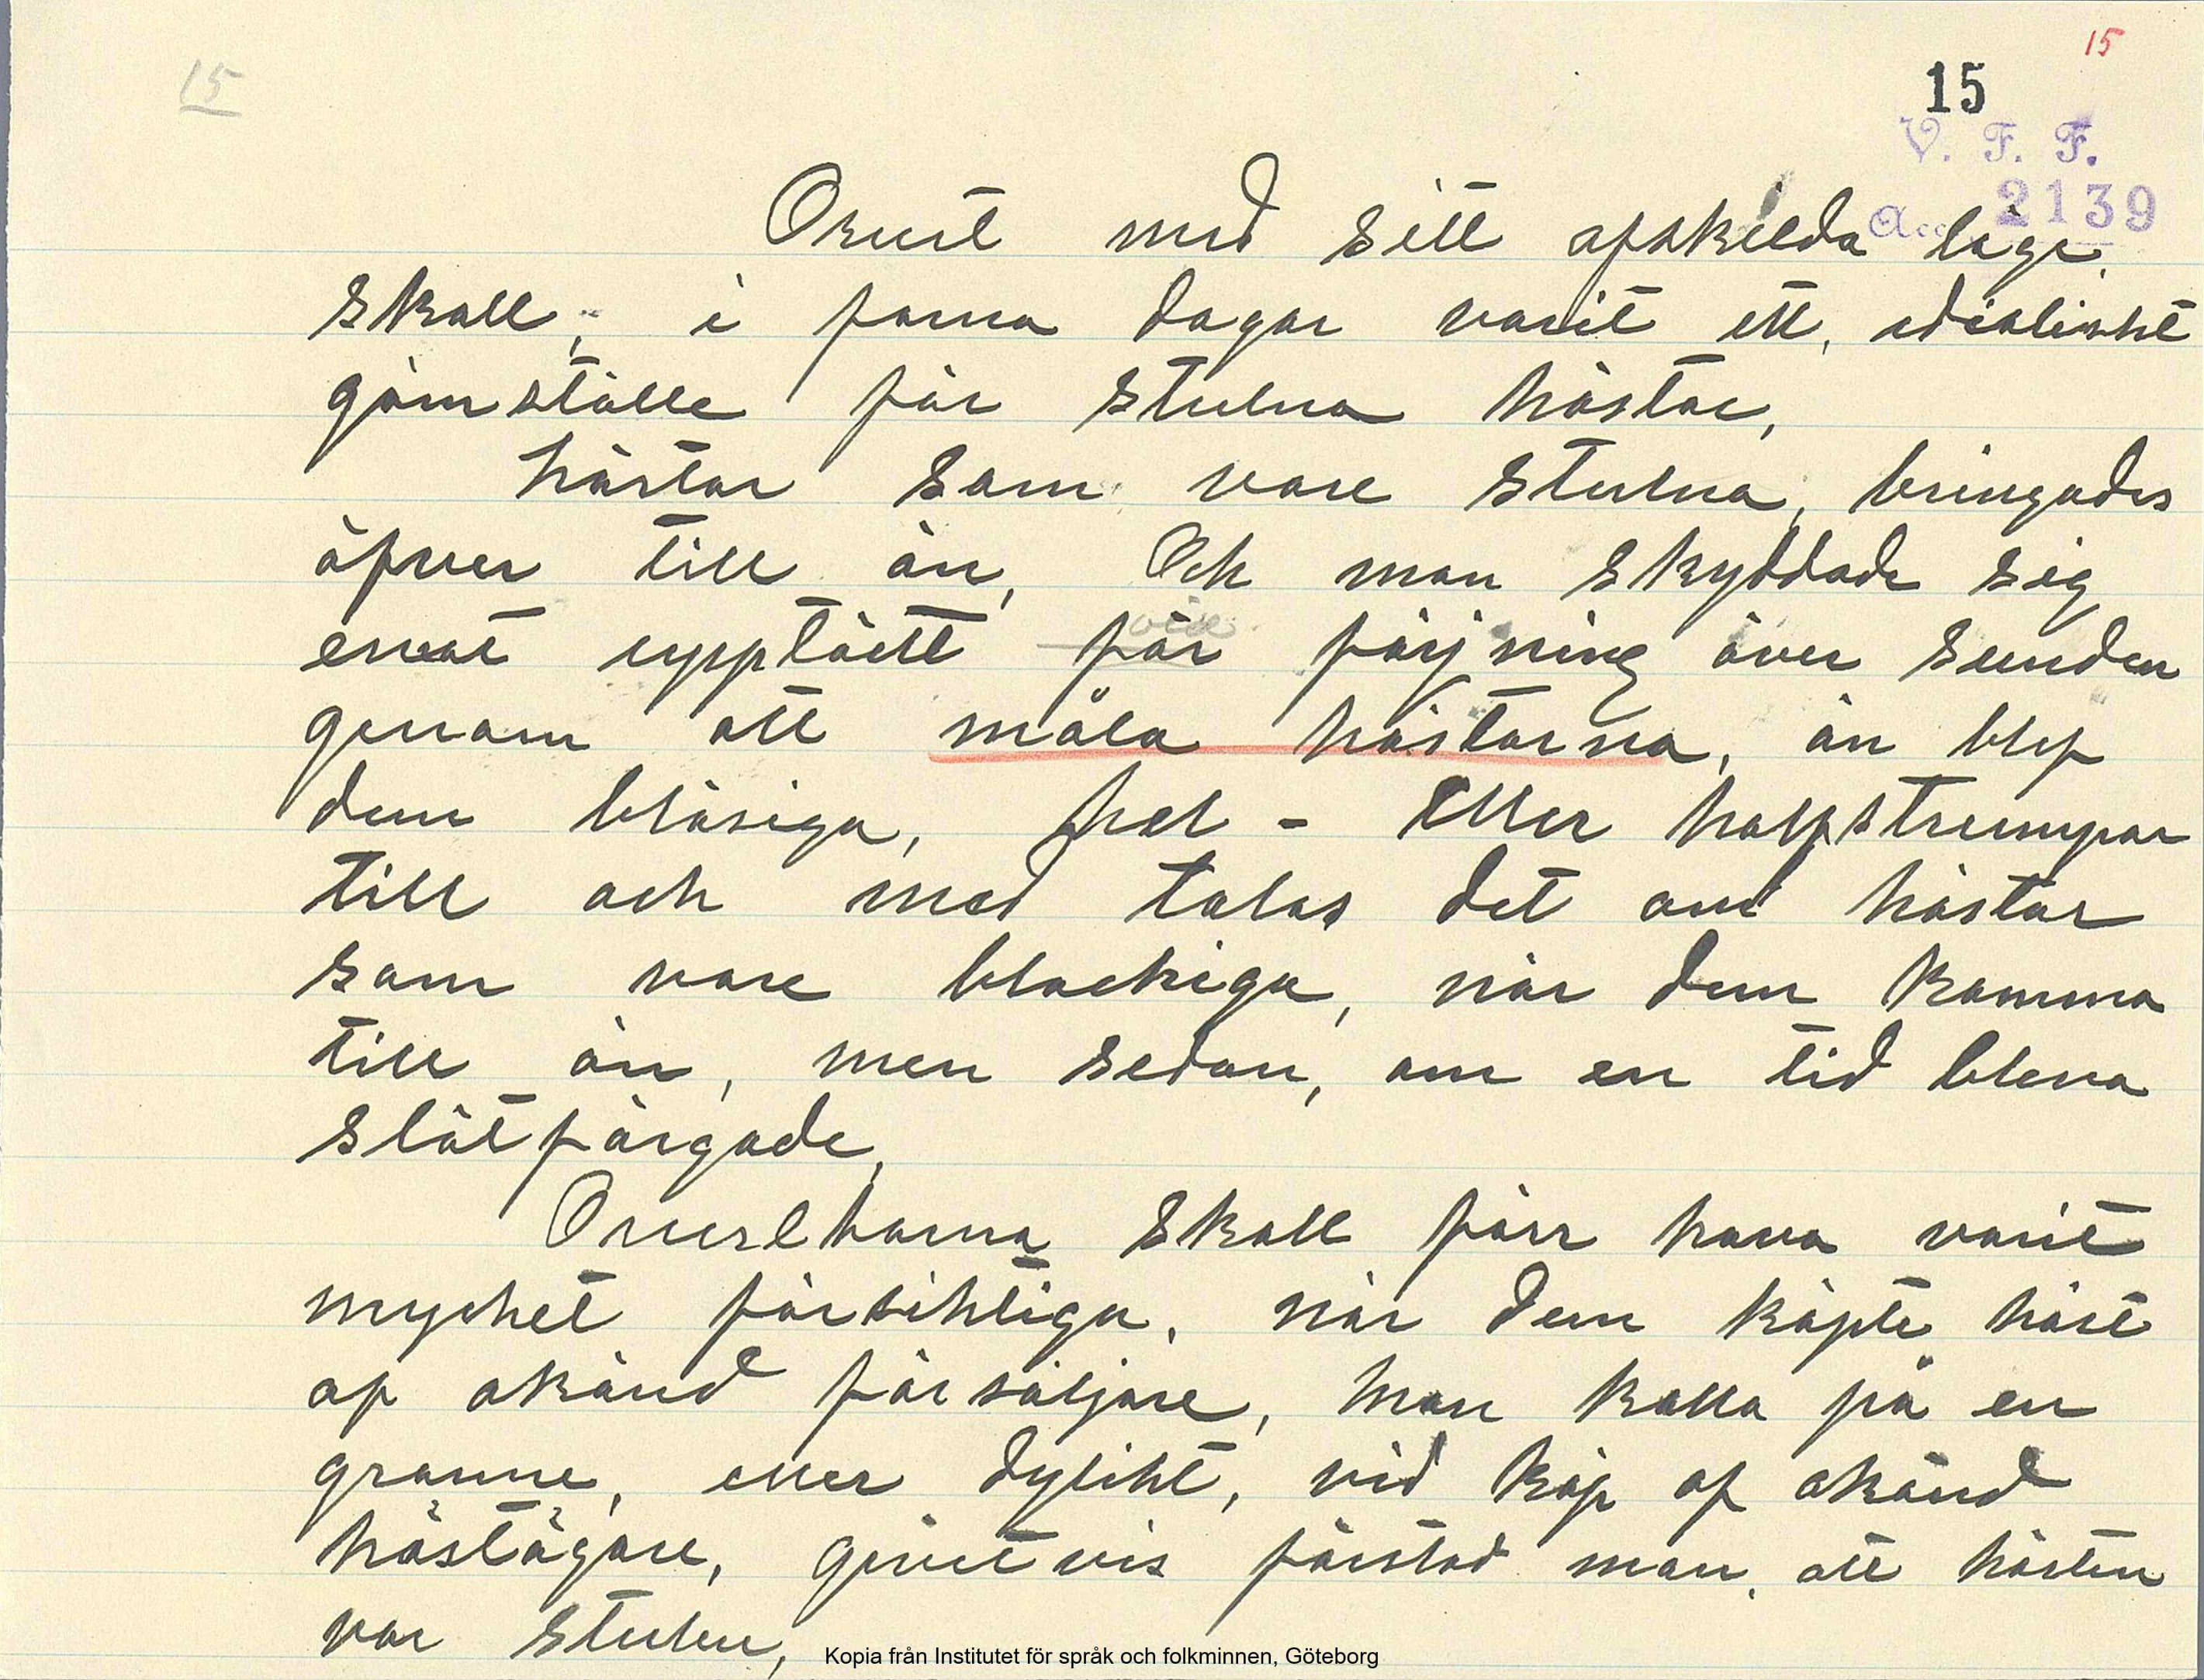 15
15
15
V. F. F.
Acc. 2139
Orust med sitt afskilda läge,
skall, i forna dagar varit ett, idialiskt
gömställe för stulna hästar,
hästar som vore stulna, bringades
öfver till ön, Och man skyddade sig
emot upptäckt för färjning över sunden
vid
genom att måla hästarna, än blef
dem bläsiga, hel- Eller halfstrumpor
till och med talas det om hästar
som vore blackiga, när dem komma
till ön, men sedan, om en tid bleva
slätfärgade,
Orustborna skall förr hava varit
mycket försiktiga, när dem köpte häst
af okänd försäljare, man kalla på en
granne, eller dylikt, vid köp af okänd
hästägare, givetvis förstod man, att hästen
var stulen,
Kopia från Institutet för språk och folkminnen, Göteborg